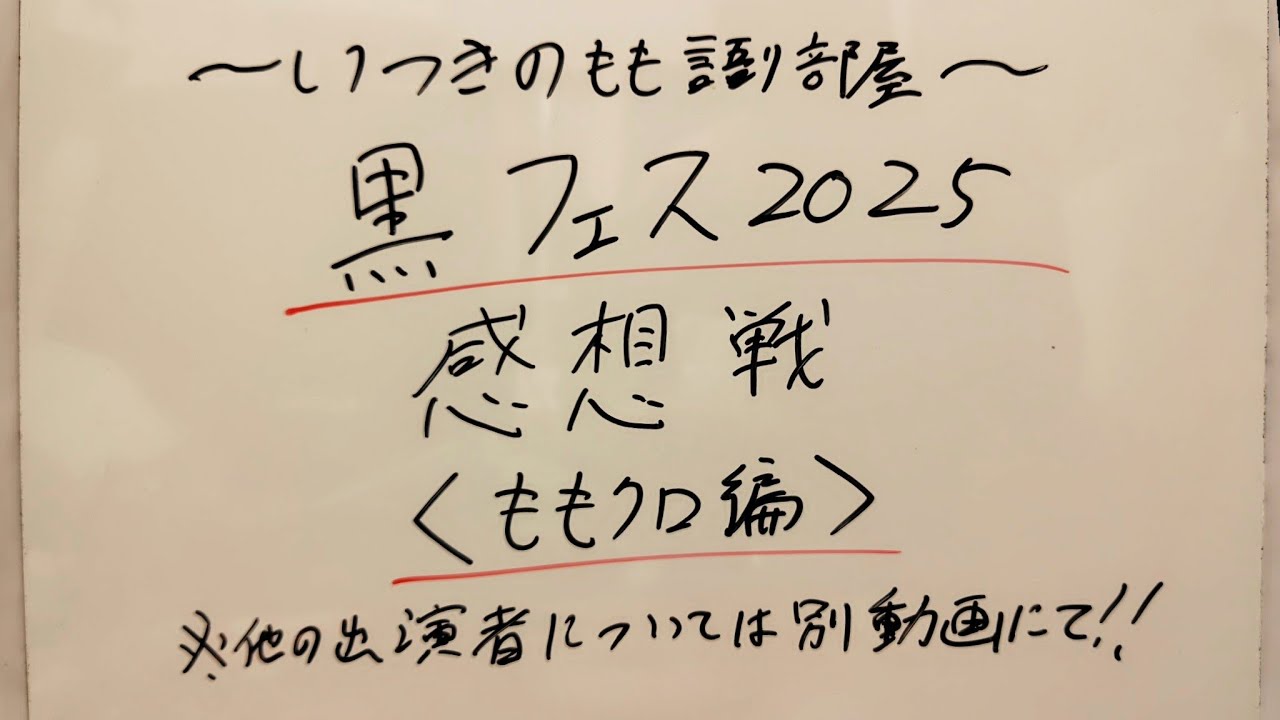 ～いつきのもも語り部屋～
黒フェス2025
感想戦
〈ももクロ編〉
※他の出演者については別動画にて!!